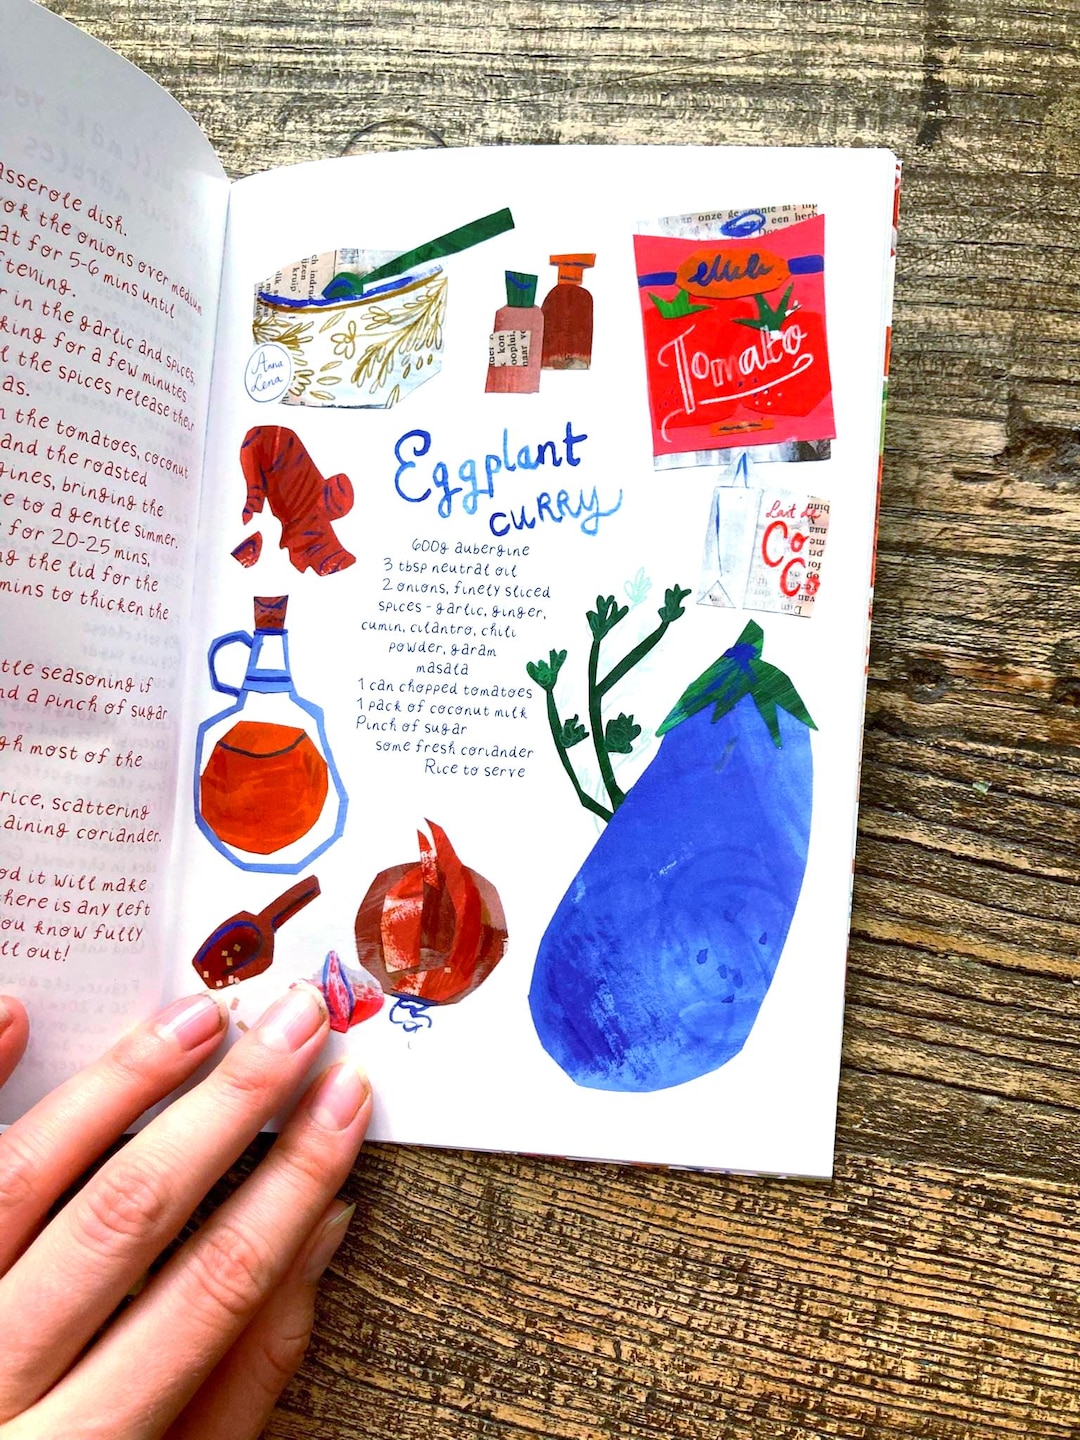 asserole dish.
ok the onions over medium
at for 5-6 mins until
ftening.
r in the garlic and spices,
king for a few minutes
l the spices release their
as.
n the tomatoes, coconut
and the roasted
gines, bringing the
ce to a gentle simmer.
for 20-25 mins,
ng the lid for the
mins to thicken the
ttle seasoning if
nd a pinch of sugar
gh most of the
rice, scattering
aining coriander.
od it will make
here is any left
ou know fully
ll out!
Anna
Lena
kon
ooplui
naar
Tomato
Eggplant
CURRY
600g aubergine
3 tbsp neutral oil
2 onions, finely sliced
spices - garlic, ginger,
cumin, cilantro, chili
powder, garam
masala
1 can chopped tomatoes
1 pack of coconut milk
Pinch of sugar
some fresh coriander
Rice to serve
Lait de
Co
Co